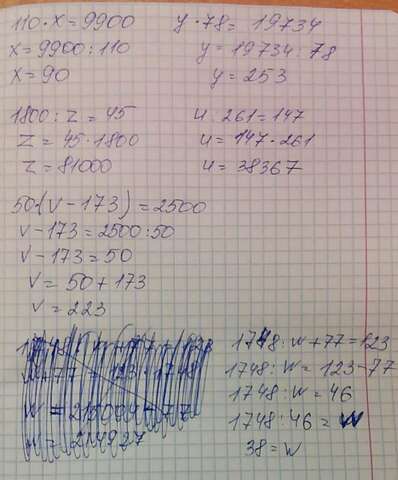 110 · x = 9900
x = 9900 : 110
x = 90
y · 78 = 19734
y = 19734 : 78
y = 253
1800 : z = 45
z = 45 · 1800
z = 81000
u : 261 = 147
u = 147 · 261
u = 38367
50 · (v - 173) = 2500
v - 173 = 2500 : 50
v - 173 = 50
v = 50 + 173
v = 223
w = 215004 - 77
w = 214927
1748 : w + 77 = 123
1748 : w = 123 - 77
1748 : w = 46
1748 : 46 = w
38 = w